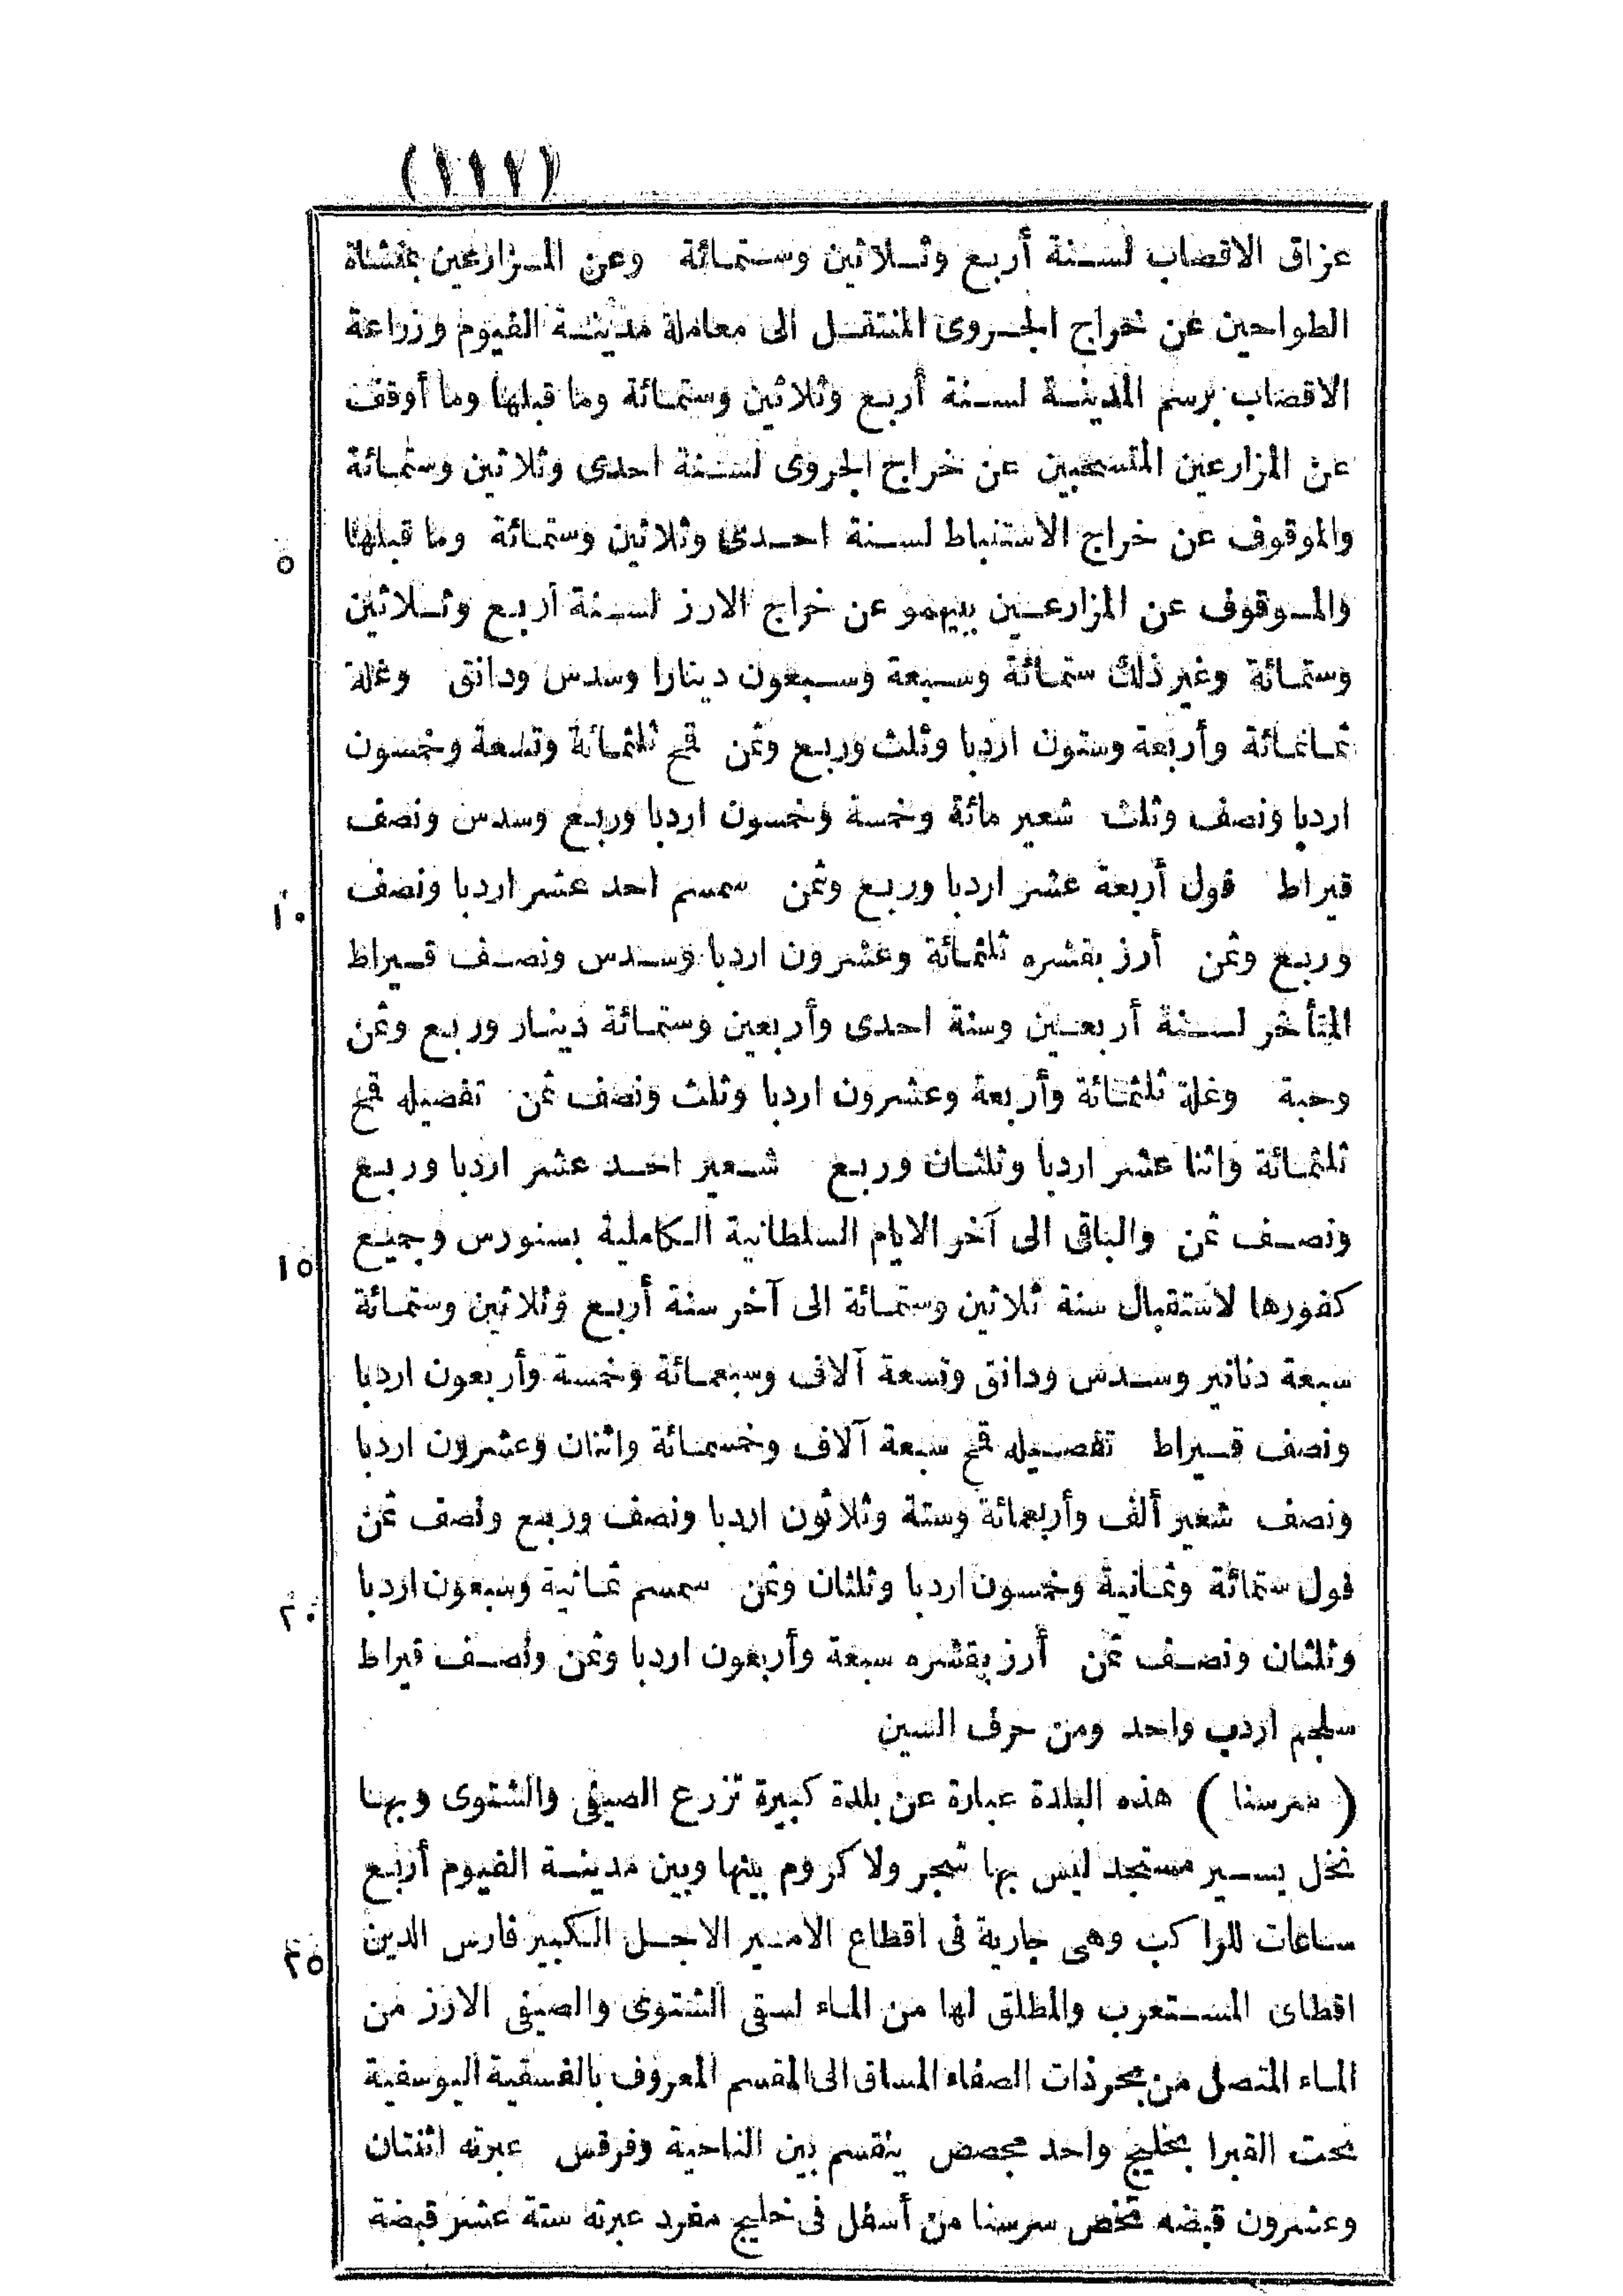 (١١٧)
عزاق الاقصاب لسنة أربع وثلاثين وستمائة وعن المزارعين بمنشاة
الطواحين عن خراج الجروى المنتقل الى معاملة مدينة الفيوم وزراعة
الاقصاب برسم المدينة لسنة أربع وثلاثين وستمائة وما قبلها وما أوقف
عن المزارعين المتسحبين عن خراج الجروى لسنة احدى وثلاثين وستمائة
والموقوف عن خراج الاستنباط لسنة احدى وثلاثين وستمائة وما قبلها
٥
والموقوف عن المزارعين ببيهمو عن خراج الارز لسنة أربع وثلاثين
وستمائة وغير ذلك ستمائة وسبعة وسبعون دينارا وسدس ودانق وغلة
ثمانمائة وأربعة وستون اردبا وثلث وربع وثمن قمح ثلثمائة وتسعة وخمسون
اردبا ونصف وثلث شعير مائة وخمسة وخمسون اردبا وربع وسدس ونصف
قيراط فول أربعة عشر اردبا وربع وثمن سمسم احد عشر اردبا ونصف
١٠
وربع وثمن أرز بقشره ثلثمائة وعشرون اردبا وسدس ونصف قيراط
المتأخر لسنة أربعين وسنة احدى وأربعين وستمائة دينار وربع وثمن
وحبة وغلة ثلثمائة وأربعة وعشرون اردبا وثلث ونصف ثمن تفصيله قمح
ثلثمائة واثنا عشر اردبا وثلثان وربع شعير احد عشر اردبا وربع
ونصف ثمن والباقى الى آخر الايام السلطانية الكاملية بسنورس وجميع
١٥
كفورها لاستقبال سنة ثلاثين وستمائة الى آخر سنة أربع وثلاثين وستمائة
سبعة دنانير وسدس ودانق وتسعة آلاف وسبعمائة وخمسة وأربعون اردبا
ونصف قيراط تفصيله قمح سبعة آلاف وخمسمائة واثنان وعشرون اردبا
ونصف شعير ألف وأربعمائة وستة وثلاثون اردبا ونصف وربع ونصف ثمن
فول ستمائة وثمانية وخمسون اردبا وثلثان وثمن سمسم ثمانية وسبعون اردبا
٢٠
وثلثان ونصف ثمن أرز بقشره سبعة وأربعون اردبا وثمن ونصف قيراط
سلجم اردب واحد ومن حرف السين
(سرسنا) هذه البلدة عبارة عن بلدة كبيرة تزرع الصيفى والشتوى وبها
نخل يسير مستجد ليس بها شجر ولا كروم بينها وبين مدينة الفيوم أربع
ساعات للراكب وهى جارية فى اقطاع الامير الاجل الكبير فارس الدين
٢٥
اقطاى المستعرب والمطلق لها من الماء لسقى الشتوى والصيفى الارز من
الماء المتصل من بحر ذات الصفاء المساق الى المقسم المعروف بالفسقية اليوسفية
تحت القبرا بخليج واحد مجصص ينقسم بين الناحية وفرقس عبرته اثنتان
وعشرون قبضه تخص سرسنا من أسفل فى خليج مفرد عبرته ستة عشر قبضة